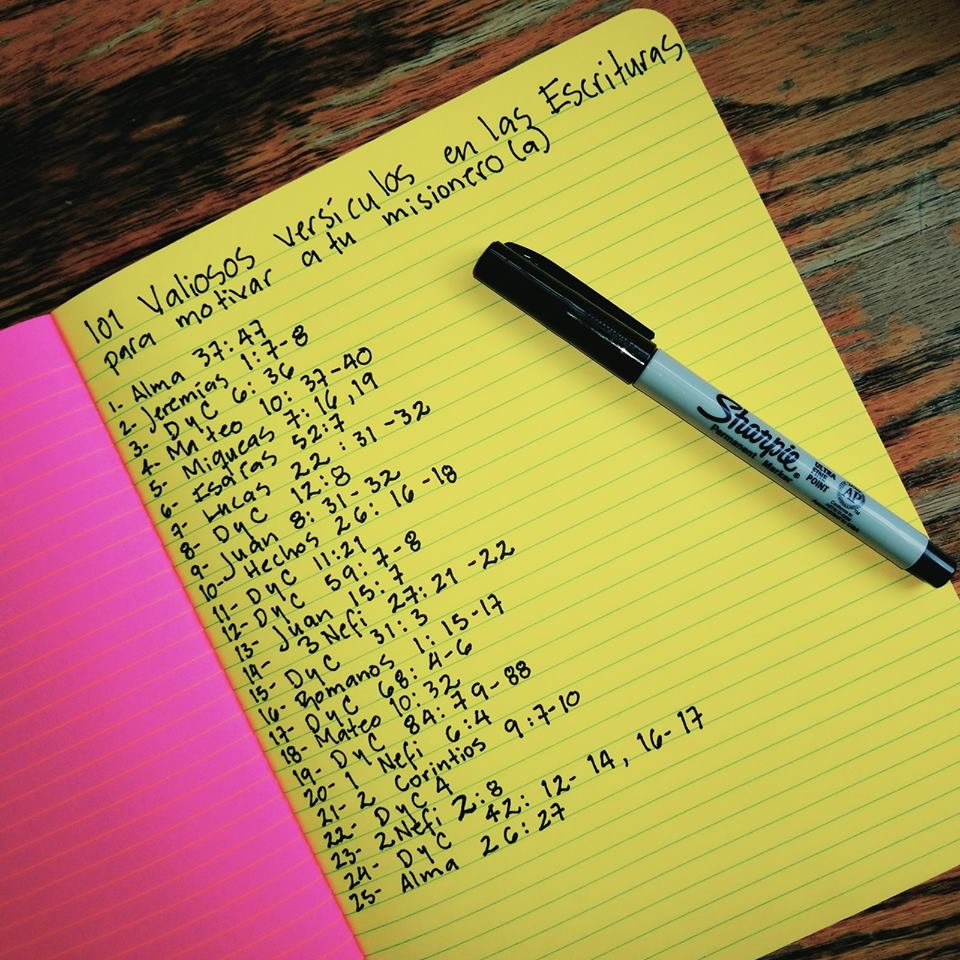 101 Valiosos versículos en las Escrituras
para motivar a tu misionero(a)
1- Alma 37:47
2- Jeremías 1:7-8
3- DyC 6:36
4- Mateo 10:37-40
5- Miqueas 7:16,19
6- Isaías 52:7
7- Lucas 22:31-32
8- DyC 12:8
9- Juan 8:31-32
10- Hechos 26:16-18
11- DyC 11:21
12- DyC 59:7-8
13- Juan 15:7
14- 3 Nefi 27:21-22
15- DyC 31:3
16- Romanos 1:15-17
17- DyC 68:4-6
18- Mateo 10:32
19- DyC 84:79-88
20- 1 Nefi 6:4
21- 2 Corintios 9:7-10
22- DyC 4
23- 2 Nefi 2:8
24- DyC 42:12-14, 16-17
25- Alma 26:27
Sharpie®
Permanent Marker
ULTRA
FINE
POINT
AP